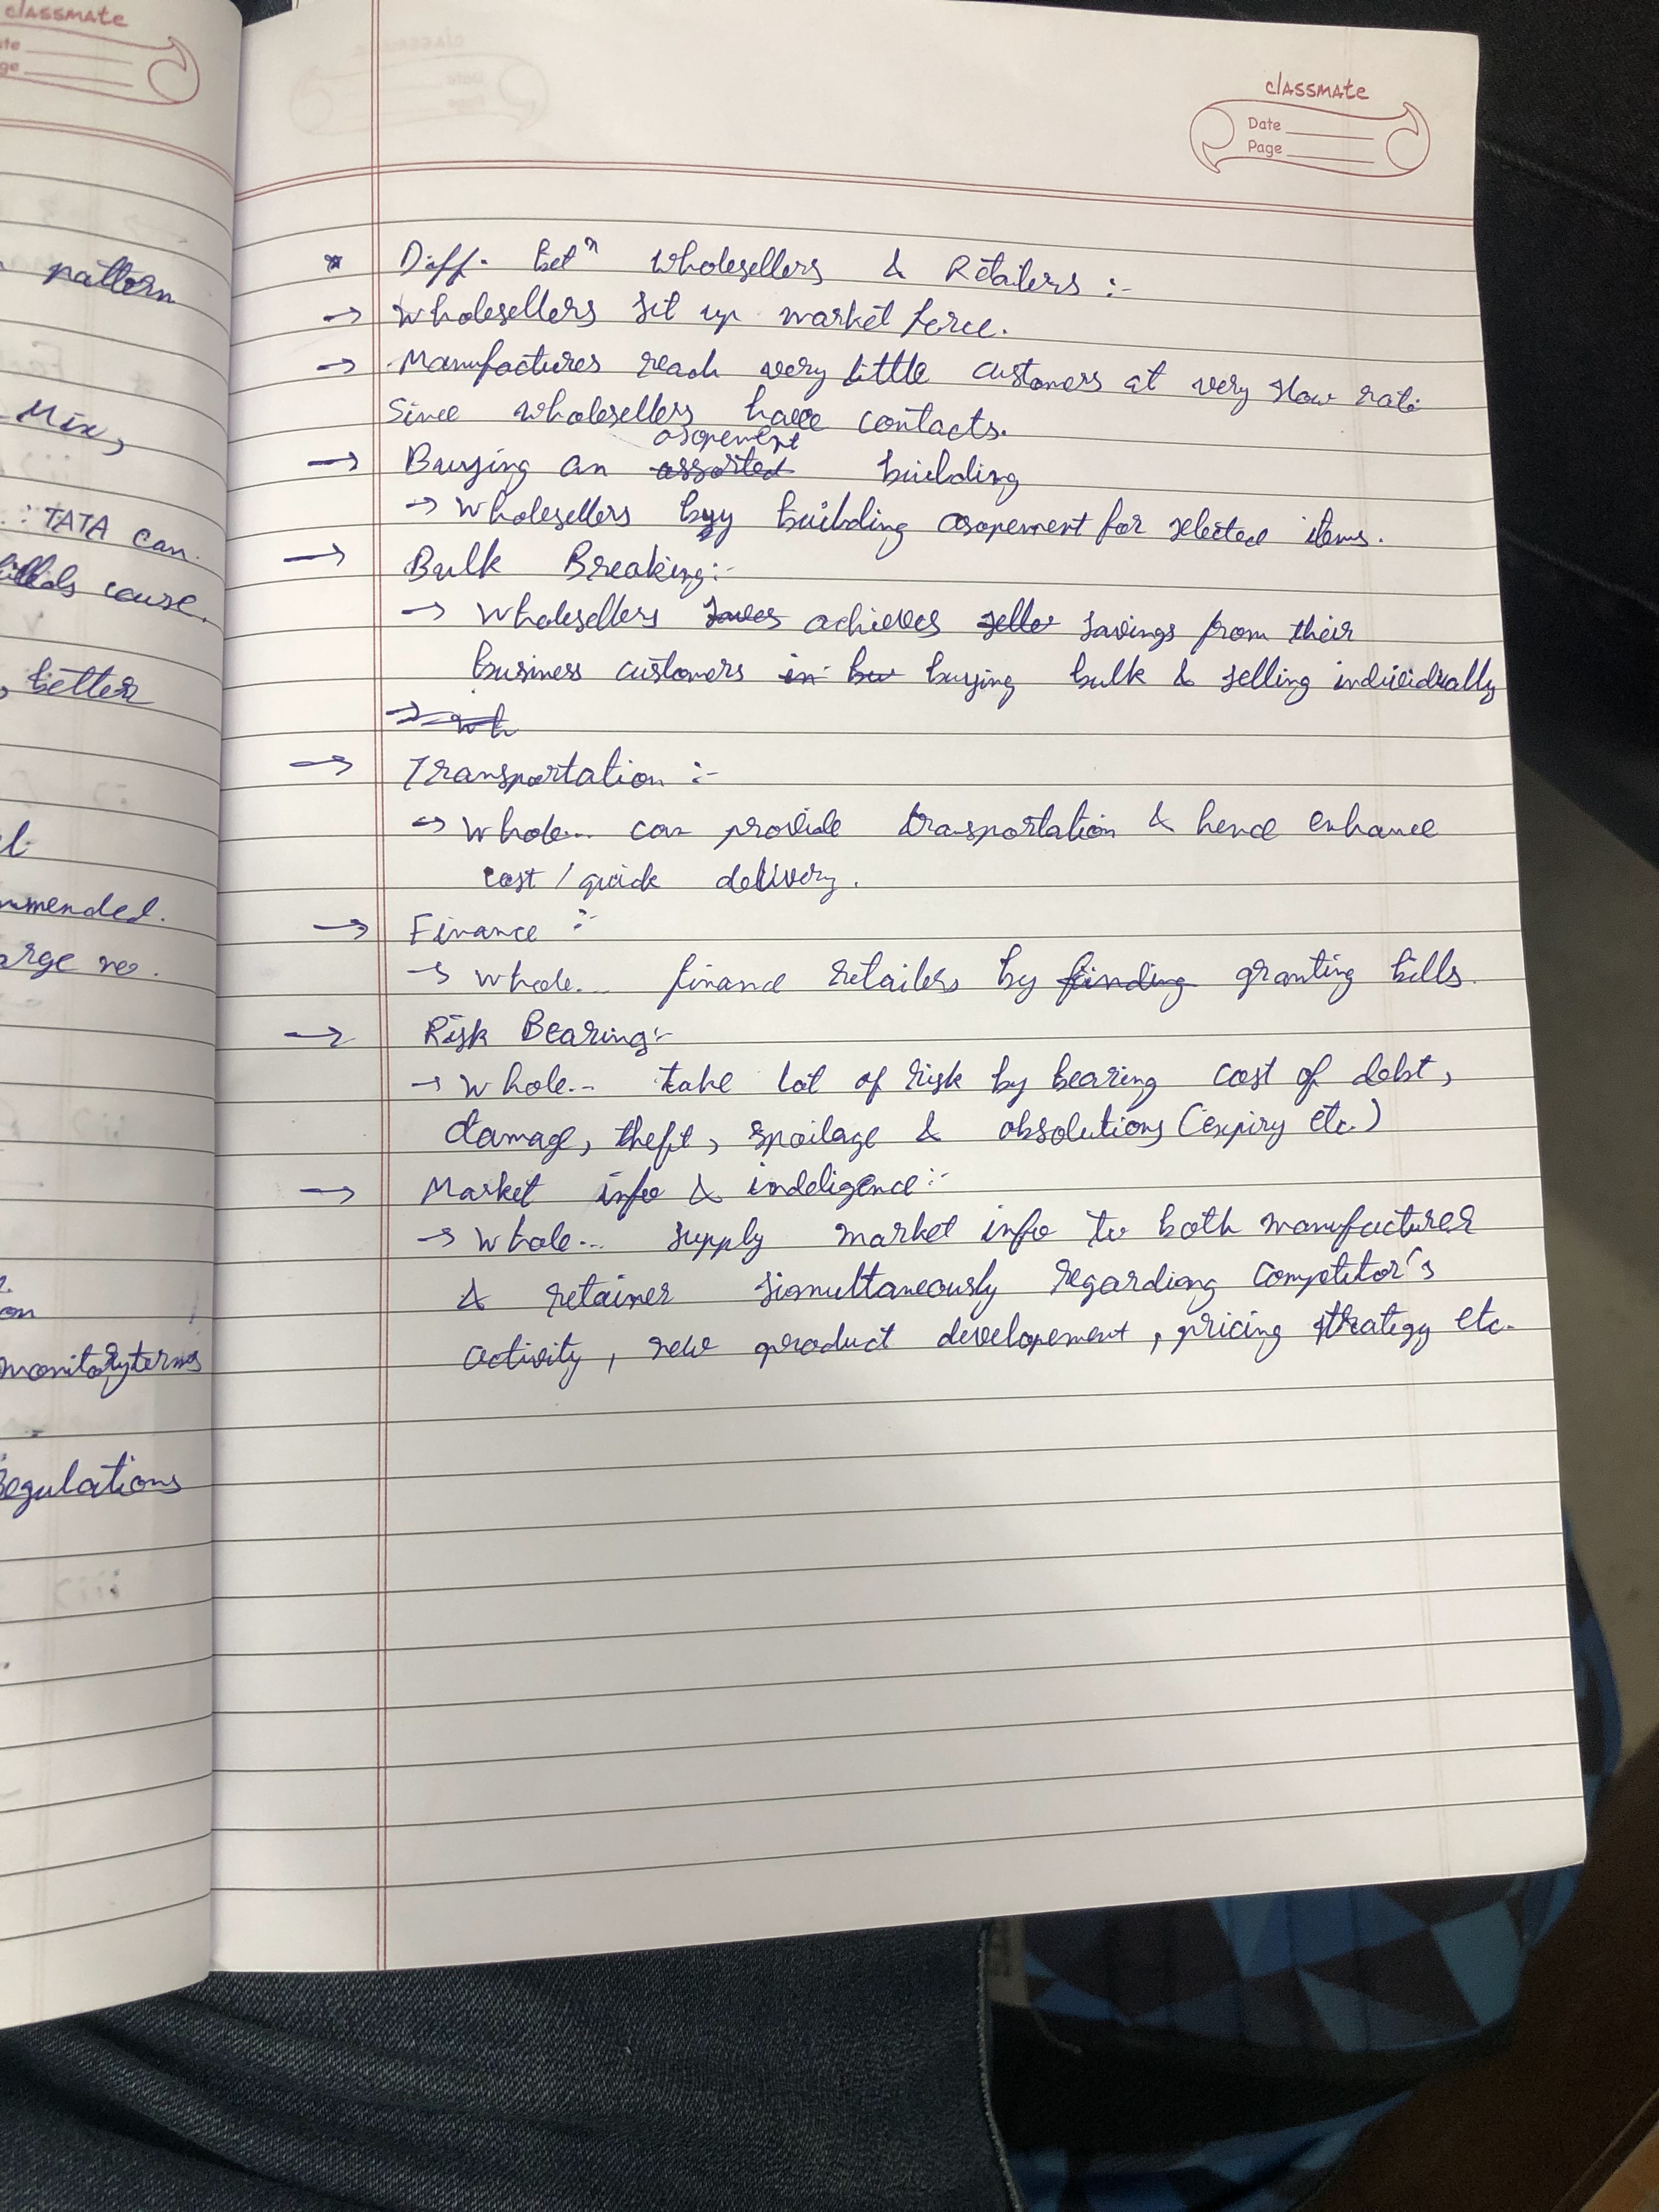 classmate
ate
ge
pattern
Mix,
: TATA can
cause.
, better
mmended.
arge no.
on
monitoryterms
Regulations
classmate
Date
Page
* Diff. betⁿ wholesellers & Retailers :-
→ Wholesellers set up market force.
→ Manufactures reach very little customers at very slow rate
Since wholesellers have contacts.
asopement
→ Buying an assorted building
→ Wholesellers buy building asopement for selected items.
→ Bulk Breaking:-
→ Wholesellers saves achieves seller savings from their
business customers in bu buying bulk & selling individually
→ wh
→ Transportation :-
→ Whole... can provide transportation & hence enhance
cost / quick delivery.
→ Finance :-
→ Whole... finance retailers by finding granting bills.
→ Risk Bearing:-
→ Whole... take lot of risk by bearing cost of debt,
damage, theft, spoilage & obsolutions (expiry etc.)
→ Market info & indeligence:-
→ Whole... supply market info to both manufacturer
& retainer simultaneously regarding competitor's
activity, new product developement, pricing strategy etc.